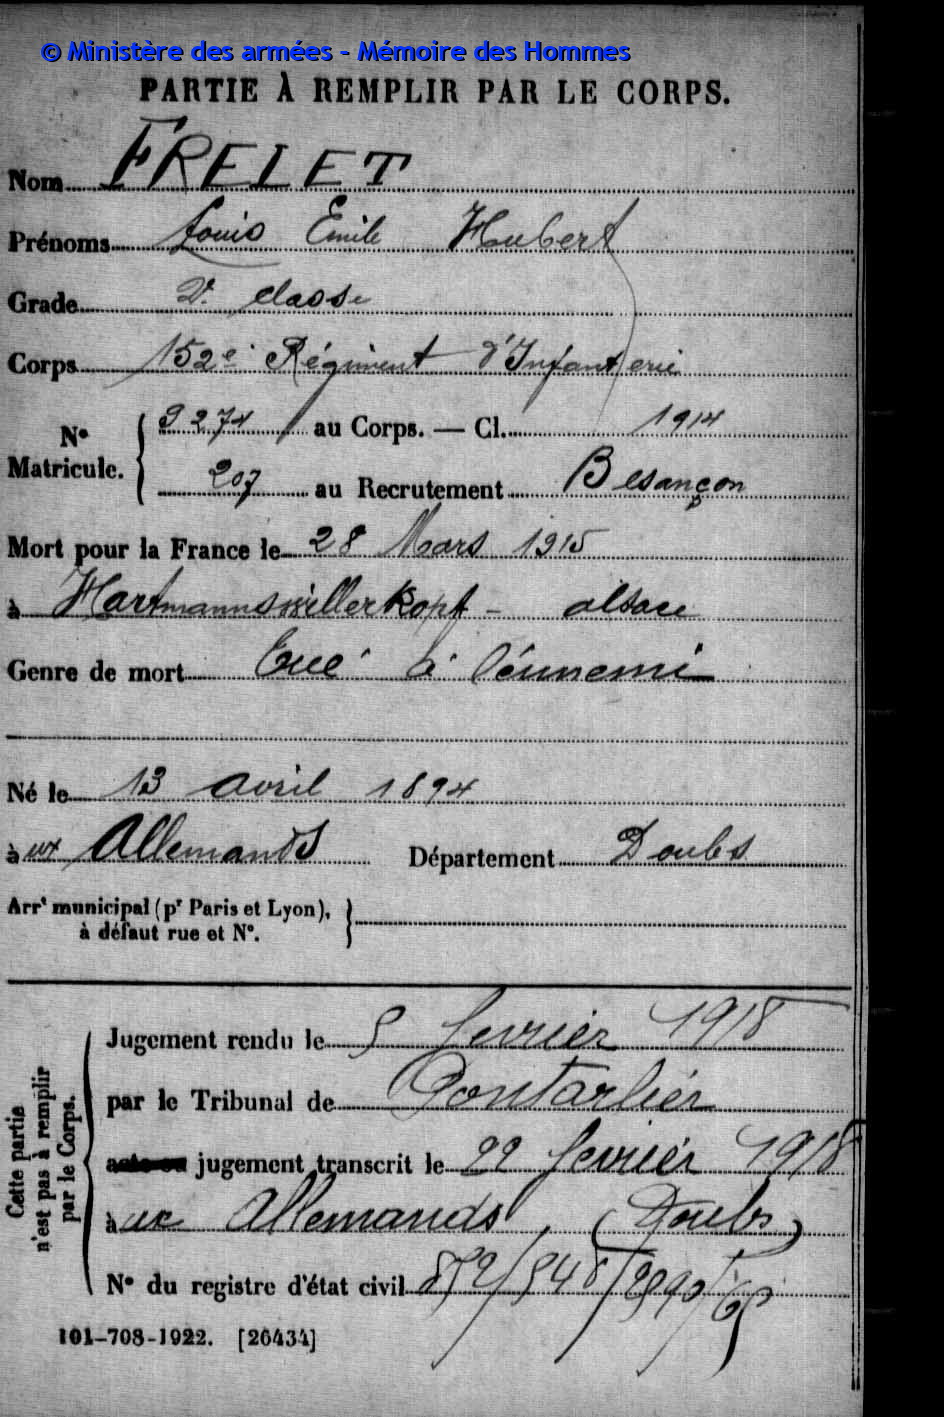 © Ministère des armées - Mémoire des Hommes
PARTIE À REMPLIR PAR LE CORPS.
Nom FRELET
Prénoms Louis Emile Hubert
Grade 2e classe
Corps 152e Régiment d'Infanterie
No Matricule. { 9274 au Corps. — Cl. 1914
207 au Recrutement Besançon
Mort pour la France le 28 Mars 1915
à Hartmannswillerkopf - alsace
Genre de mort Tué à l'énnemi
Né le 13 avril 1894
àux Allemands Département Doubs
Arrt municipal (pr Paris et Lyon), à défaut rue et No.
Cette partie n'est pas à remplir par le Corps.
Jugement rendu le 5 fevrier 1918
par le Tribunal de Pontarlier
acte ou jugement transcrit le 22 fevrier 1918
àux Allemands, (Doubs)
No du registre d'état civil
101-708-1922. [26434]